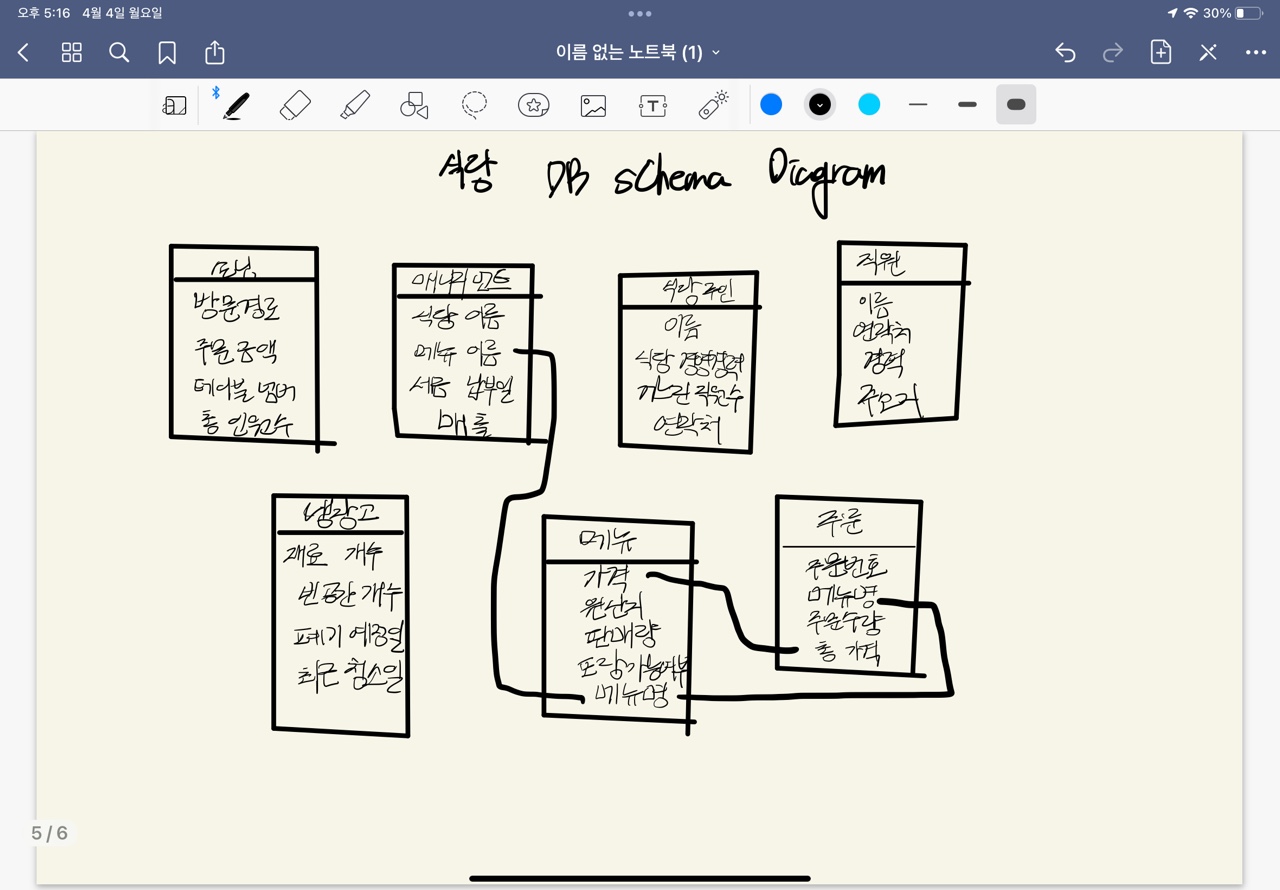 오후 5:16 4월 4일 월요일
30%
이름 없는 노트북 (1)
식당 DB schema Diagram
손님
방문경로
주문 금액
테이블 넘버
총 인원수
매니지먼트
식당 이름
메뉴 이름
세금 납부일
매출
식당주인
이름
식당 경영경력
거느린 직원수
연락처
직원
이름
연락처
경력
냉장고
재료 개수
빈공간 개수
폐기 예정일
최근 청소일
메뉴
가격
원산지
판매량
포장가능여부
메뉴명
주문
주문번호
메뉴명
주문수량
총 가격
5 / 6